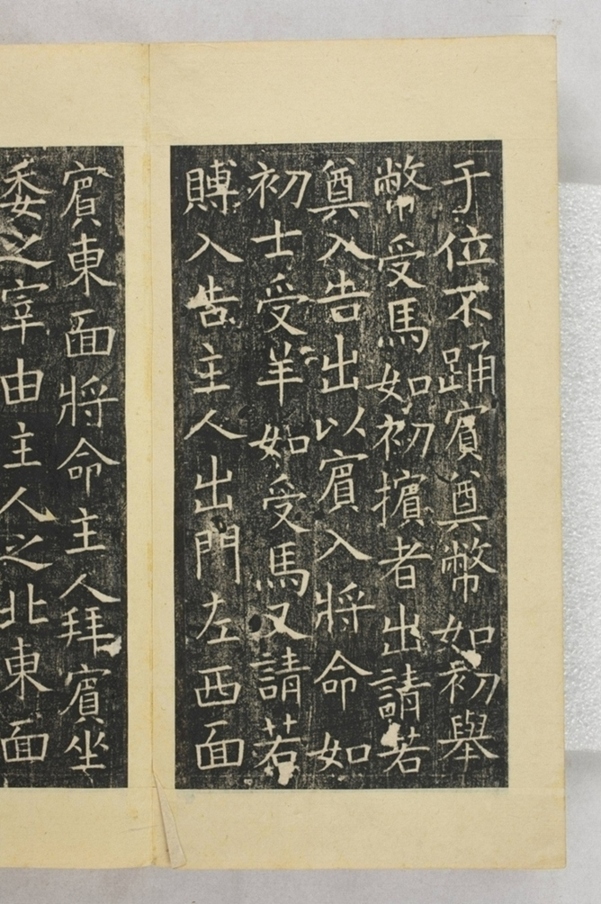 于位不踊賓奠幣如初舉
幣受馬如初擯者出請若
奠入告出以賓入將命如
初士受羊如受馬又請若
賻入告主人出門左西面
賓東面將命主人拜賓坐
委之宰由主人之北東面